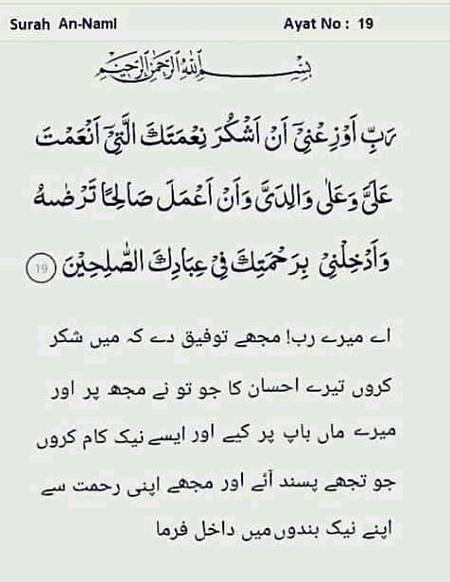 Surah An-Naml Ayat No : 19
بِسْمِ اللّٰهِ الرَّحْمٰنِ الرَّحِيْمِ
رَبِّ اَوْزِعْنِیْۤ اَنْ اَشْكُرَ نِعْمَتَكَ الَّتِیْۤ اَنْعَمْتَ
عَلَیَّ وَعَلٰی وَالِدَیَّ وَاَنْ اَعْمَلَ صَالِحًا تَرْضٰىهُ
وَاَدْخِلْنِیْ بِرَحْمَتِكَ فِیْ عِبَادِكَ الصّٰلِحِیْنَ 19
اے میرے رب! مجھے توفیق دے کہ میں شکر
کروں تیرے احسان کا جو تو نے مجھ پر اور
میرے ماں باپ پر کیے اور ایسے نیک کام کروں
جو تجھے پسند آئے اور مجھے اپنی رحمت سے
اپنے نیک بندوں میں داخل فرما